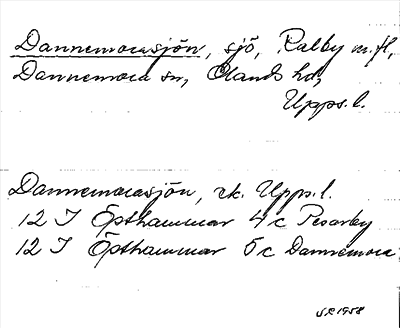 Dannemorasjön, sjö, Ralby m.fl,
Dannemora sn, Olands hd,
Upps. l.
Dannemorasjön, rk. Upps. l.
12 I Östhammar 4 c Pesarby
12 I Östhammar 5 c Dannemora
1958